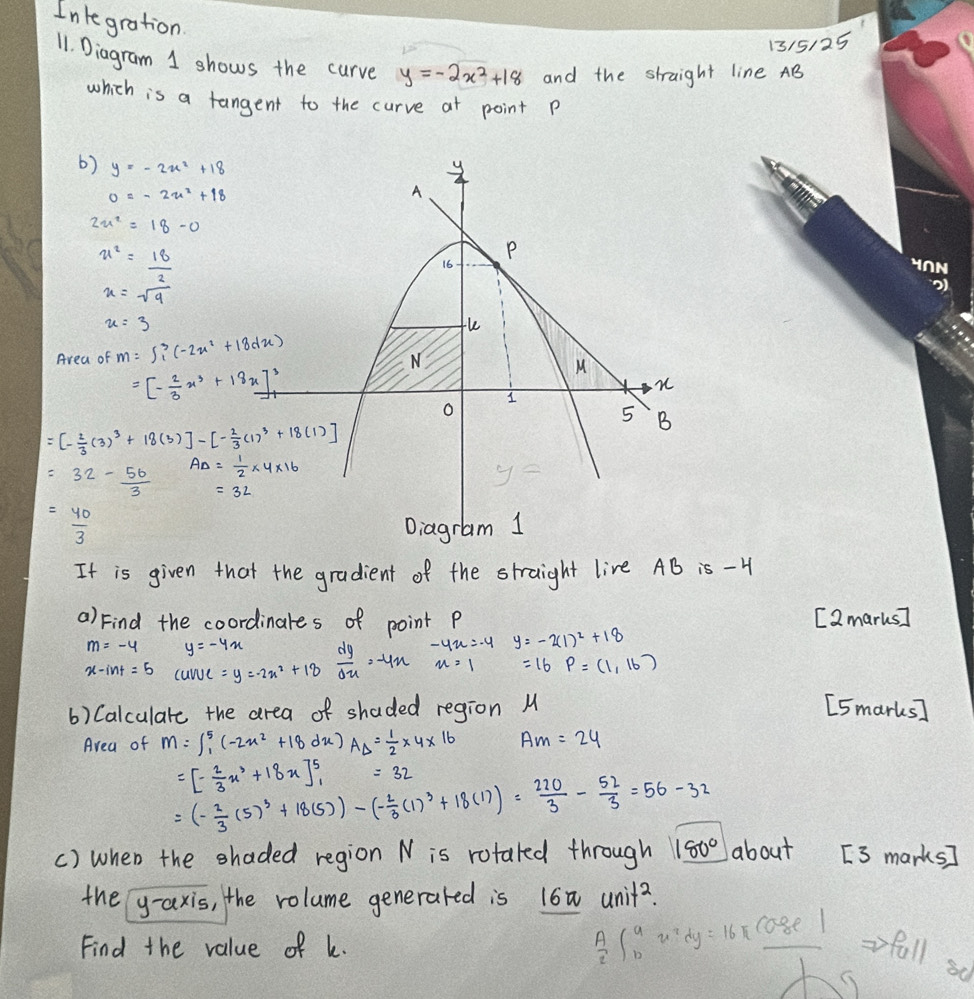 Integration.
13/5/25
11. Diagram 1 shows the curve y = -2x² + 18 and the straight line AB
which is a tangent to the curve at point P
b) y = -2x² + 18
0 = -2x² + 18
2x² = 18 - 0
x² = 18/2
x = √9
x = 3
Area of m = ∫₁³ (-2x² + 18dx)
= [-2/3 x³ + 18x]₁³
= [-2/3 (3)³ + 18(3)] - [-2/3 (1)³ + 18(1)]
= 32 - 56/3
A∆ = 1/2 × 4 × 16
= 32
= 40/3
y
A
P
16
k
N
M
x
O
1
5
B
y =
Diagram 1
It is given that the gradient of the straight line AB is -4
a) Find the coordinates of point P [2 marks]
m = -4 y = -4x dy/dx = -4x -4x = -4 y = -2(1)² + 18
x-int = 5 curve = y = -2x² + 18 x = 1 = 16 P = (1, 16)
b) Calculate the area of shaded region M [5 marks]
Area of m = ∫₁⁵ (-2x² + 18 dx) A∆ = 1/2 × 4 × 16 Am = 24
= [-2/3 x³ + 18x]₁⁵ = 32
= (-2/3 (5)³ + 18(5)) - (-2/3 (1)³ + 18(1)) = 220/3 - 52/3 = 56 - 32
c) When the shaded region N is rotated through 180° about [3 marks]
the y-axis, the volume generated is 16π unit².
Find the value of k.
∫ x² dy = 16π case 1 ⇒ full